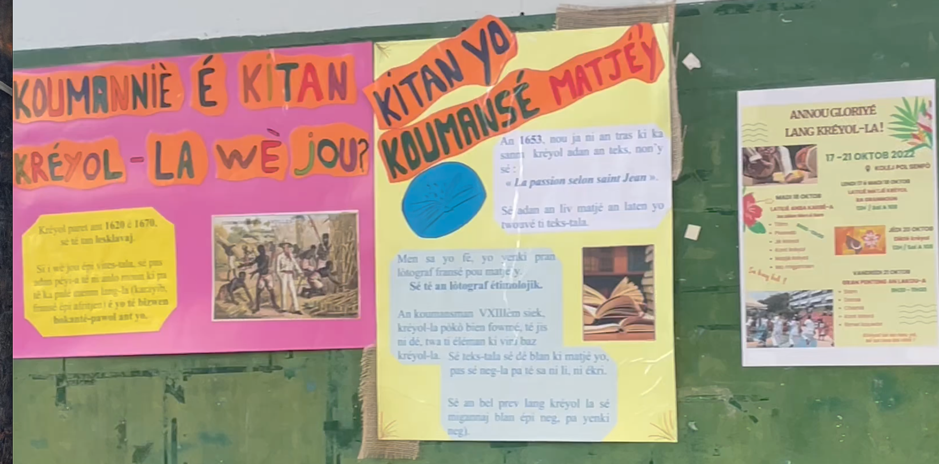 KOUMANNIÈ É KITAN
KRÉYOL-LA WÈ JOU?
Kréyol parèt ant 1620 é 1670,
sé té tan lesklavaj.
Si i wè jou épi vines-tala, sé pas
adan péyi-a té ni anlo moun ki pa
té ka palé menm lang-la (karayib,
fransé épi afritjen) é yo té bézwen
bokanté-pawol ant yo.
KITAN YO
KOUMANSÉ MATJÉ'Y
An 1653, nou ja ni an tras ki ka
sanm kréyol adan an teks, non'y
sé :
« La passion selon saint Jean ».
Sé adan an liv matjé an laten yo
twouvé ti teks-tala.
Men sa yo fè, yo yenki pran
lòtograf fransé pou matjé'y.
Sé té an lòtograf étimolojik.
An koumansman VXIIIèm siek,
kréyol-la pòkò bien fowmé, té jis
ni dé, twa ti éléman ki vini baz
kréyol-la. Sé teks-tala sé dé blan ki matjé yo,
pas sé neg-la pa té sa ni li, ni ékri.
Sé an bel prev lang kréyol la sé
migannaj blan épi neg, pa yenki
neg).
ANNOU GLORIYÉ
LANG KRÉYOL-LA!
17 -21 OKTOB 2022
KOLEJ POL SENFÒ
MADI 18 OKTOB
JEDI 20 OKTOB
VANDREDI 21 OKTOB